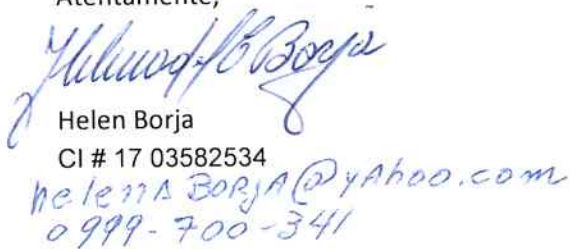 Atentamente,
Borja
Helen Borja
CI # 17 03582534
helenABORJA@yAhoo.com
0999-700-341